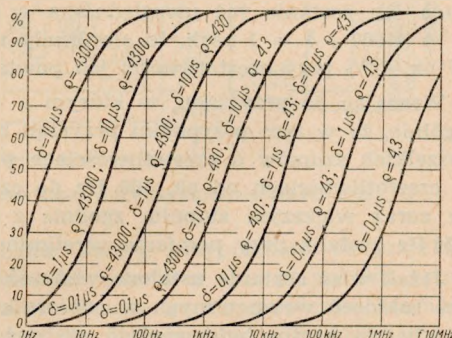 %
90
80
70
60
50
40
30
20
10
0
δ=10µs ϱ=43000
δ=1µs ϱ=43000; δ=10µs ϱ=4300
δ=0,1µs ϱ=43000; δ=1µs ϱ=4300; δ=10µs ϱ=430
δ=0,1µs ϱ=4300; δ=1µs ϱ=430; δ=10µs ϱ=4,3
δ=0,1µs ϱ=430; δ=1µs ϱ=43; δ=10µs ϱ=4,3
δ=0,1µs ϱ=43; δ=1µs ϱ=4,3
δ=0,1µs ϱ=4,3
1Hz 10Hz 100Hz 1kHz 10kHz 100kHz 1MHz f 10MHz